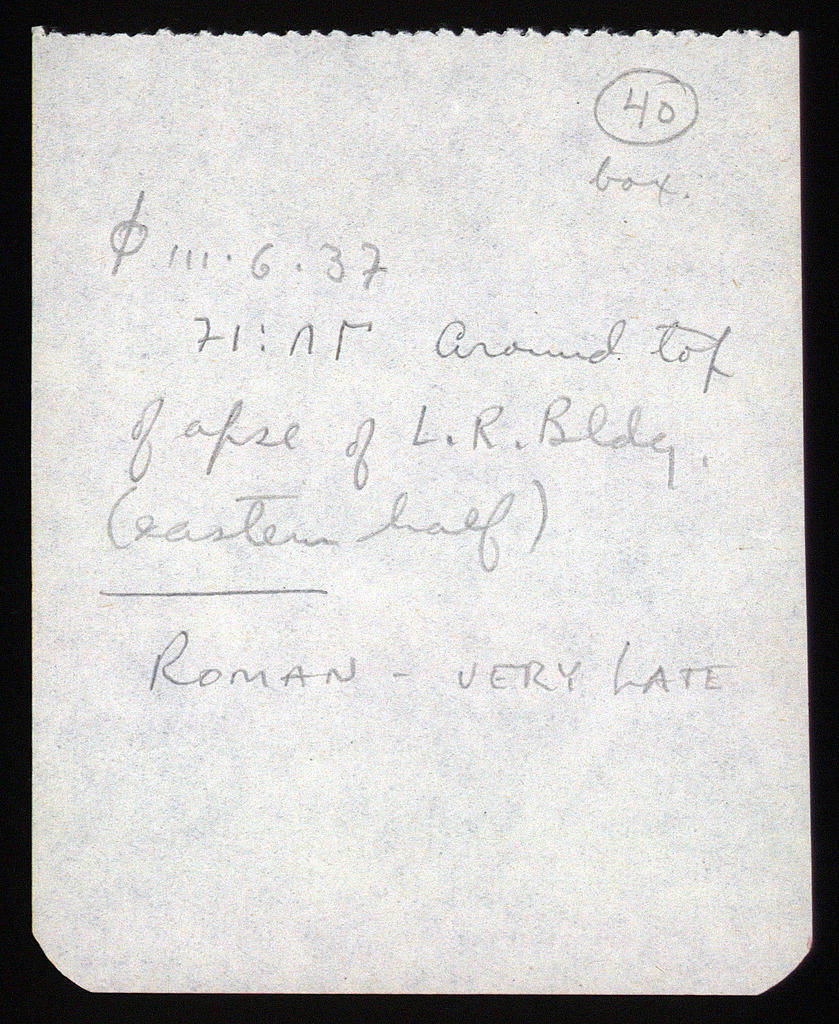 40
box.
ϕ III·6·37
71:ΛΓ Around top
of apse of L.R. Bldg.
(eastern half)
ROMAN - VERY LATE